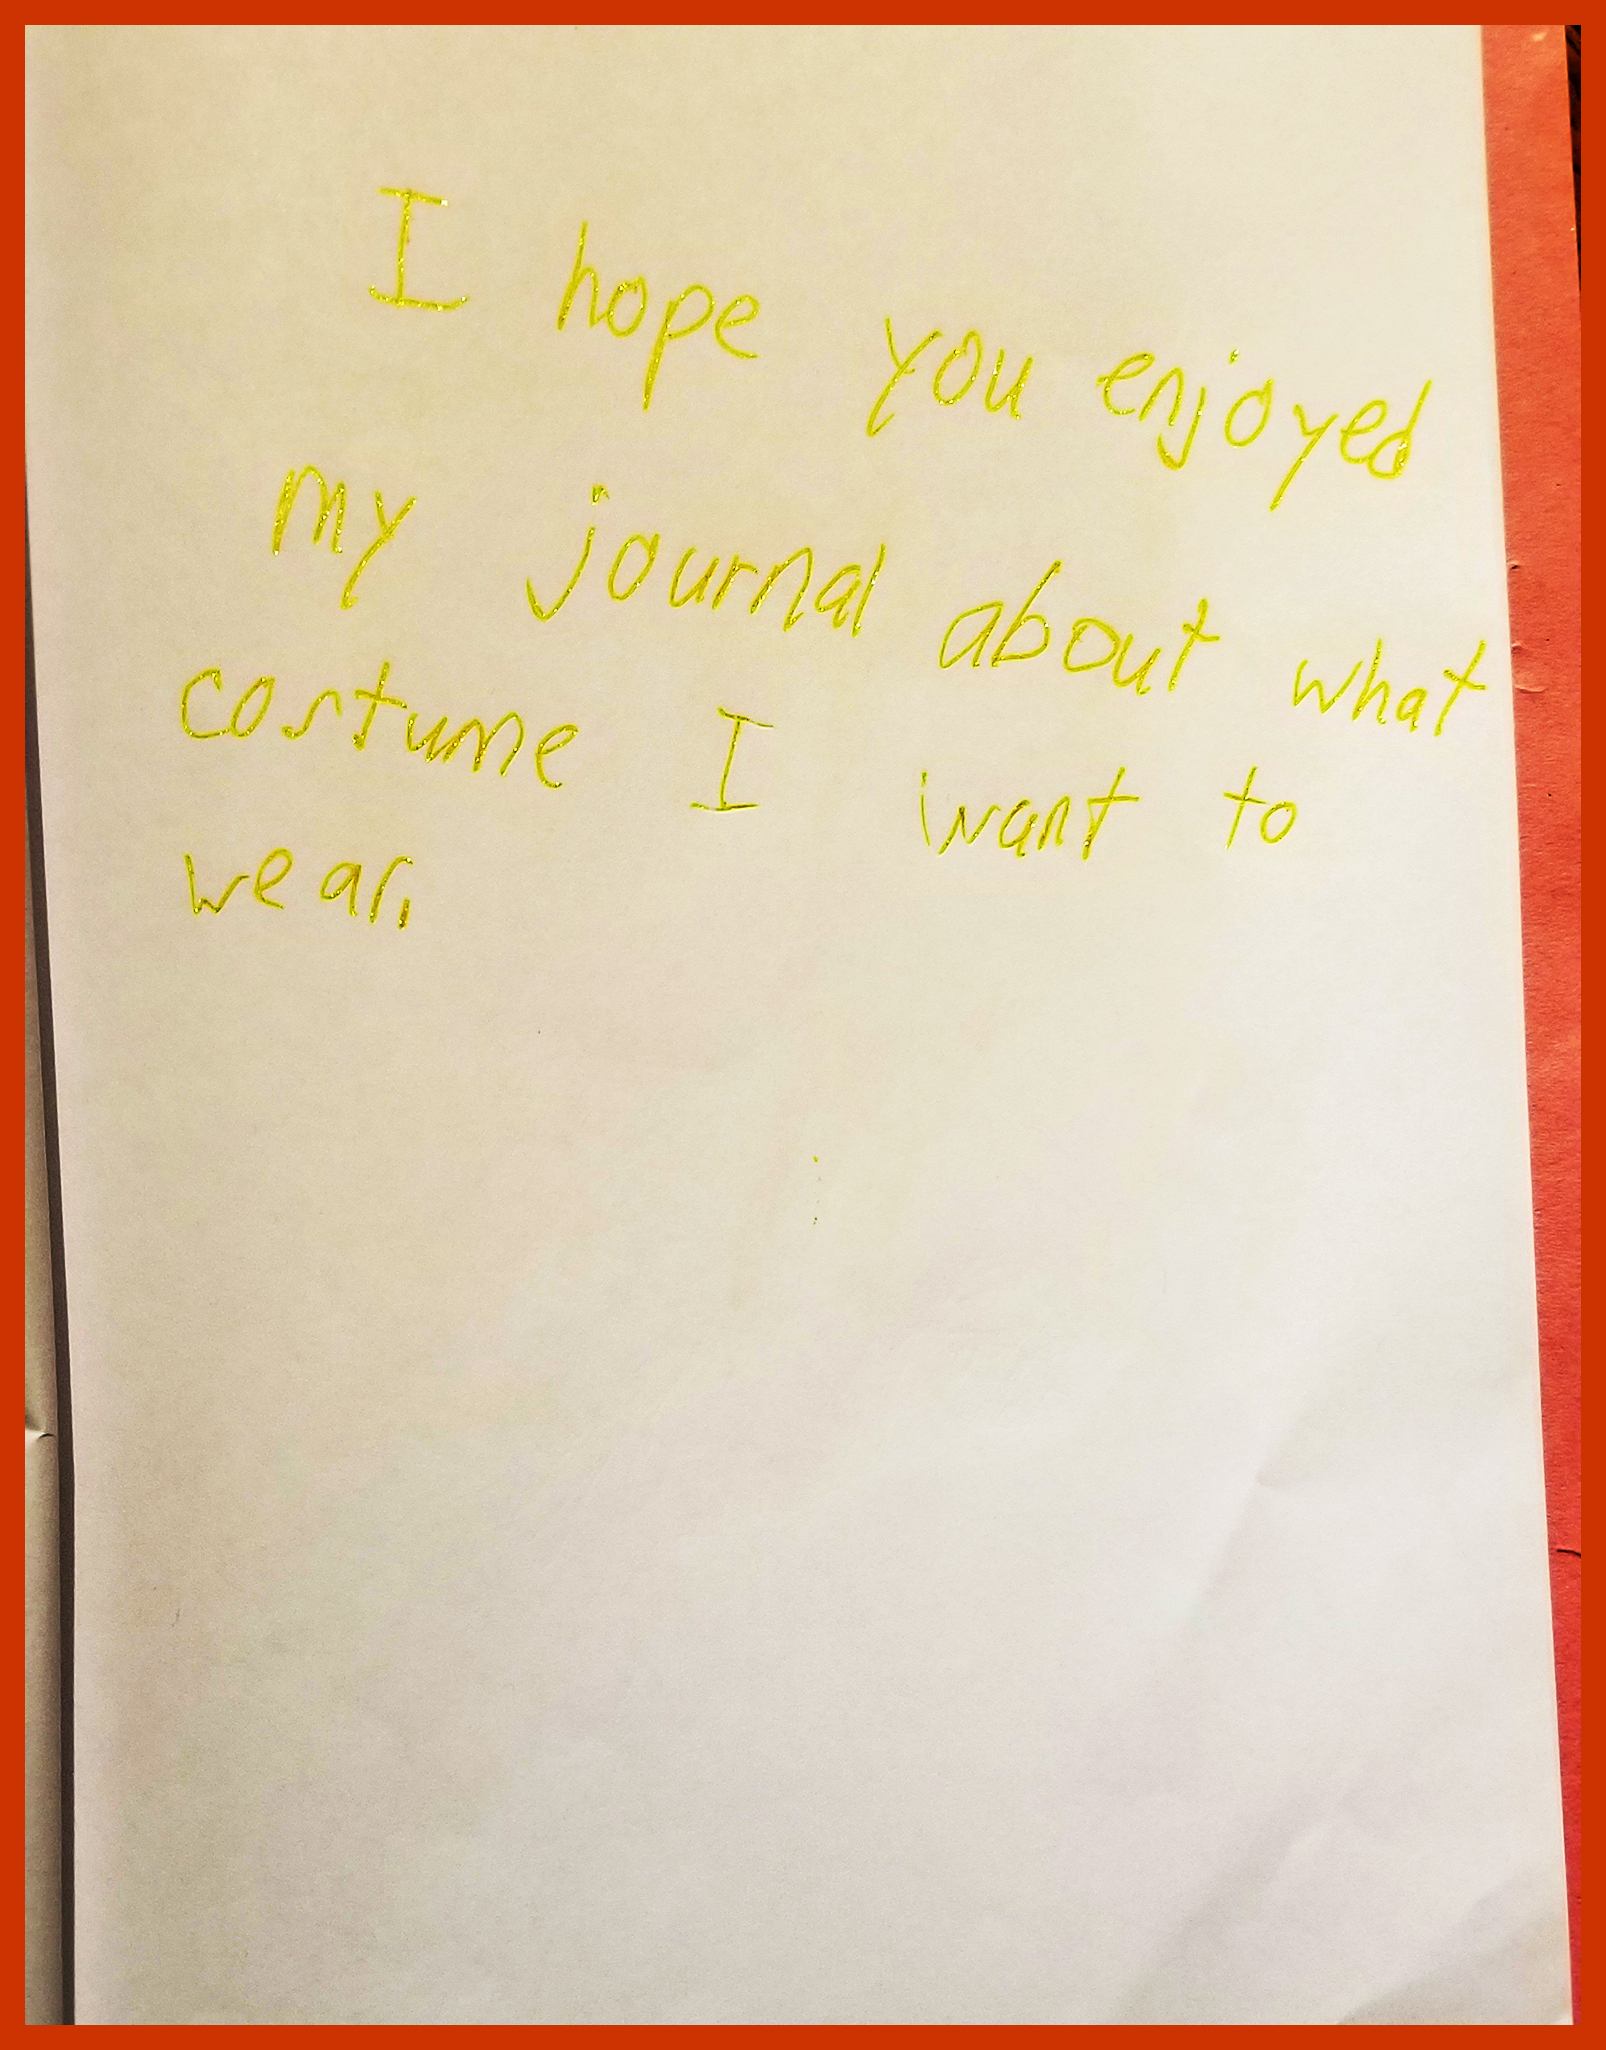 I hope you enjoyed
my journal about what
costume I want to
wear.